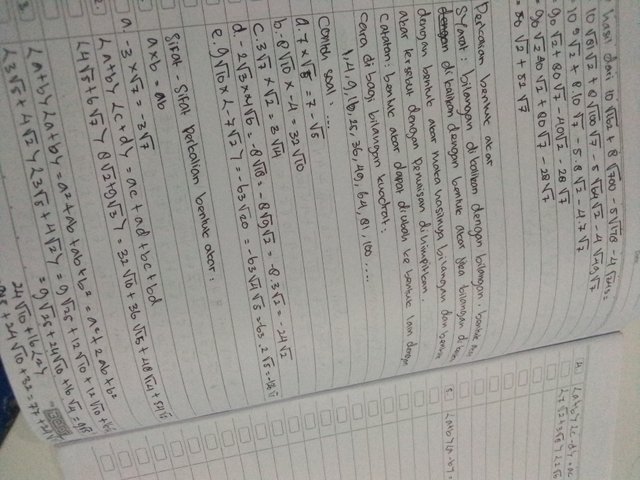 hasil dari 10√162 + 8√700 - 5√128 - 4√343 =
10√81√2 + 8√100√7 - 5√64√2 - 4√49√7
= 10.9√2 + 8.10√7 - 5.8√2 - 4.7√7
= 90√2 + 80√7 - 40√2 - 28√7
= 90√2 - 40√2 + 80√7 - 28√7
= 50√2 + 52√7
Perkalian bentuk akar
Syarat: bilangan dikalikan dengan bilangan, bentuk akar
dikalikan dengan bentuk akar jika bilangan di
dengan bentuk akar maka hasilnya bilangan dan bentuk
akar tersebut dengan penulisan dihimpitkan
catatan: bentuk akar dapat diubah ke bentuk lain dengan
cara di bagi bilangan kuadrat.
1, 4, 9, 16, 25, 36, 49, 64, 81, 100 ....
Contoh soal: ....
a. 7 x √5 = 7-√5
b. -8√10 x -4 = 32√10
c. 3√7 x √2 = 3√14
d. -2√3 x 4√6 = -8√18 = -8√9√2 = -8.3√2 = -24√2
e. 9√10 x (-7√2) = -63√20 = -63√4√5 = -63.2√5 =
Sifat - Sifat Perkalian bentuk akar:
a x b = ab
a. 3 x √7 = 3√7
2. (a+b)(c+d) = ac + ad + bc + bd
(4√5 + 6√7)(8√2 + 9√3) = 32√10 + 36√15 + 48√14 + 54√21
3. (a+b)(a+b) = a² + ab + ab + b² = a² + 2ab + b²
(3√5 + 4√2)(3√5 + 4√2) = 9√25 + 12√10 + 12√10 +
= 9√25 + 24√10 + 16√4 = 9.5
24√10 + 16(2)
45 + 24√10 + 32 = 77 +
4. (a+b)(c-d) = ac
5. (a+b)(a-b) =